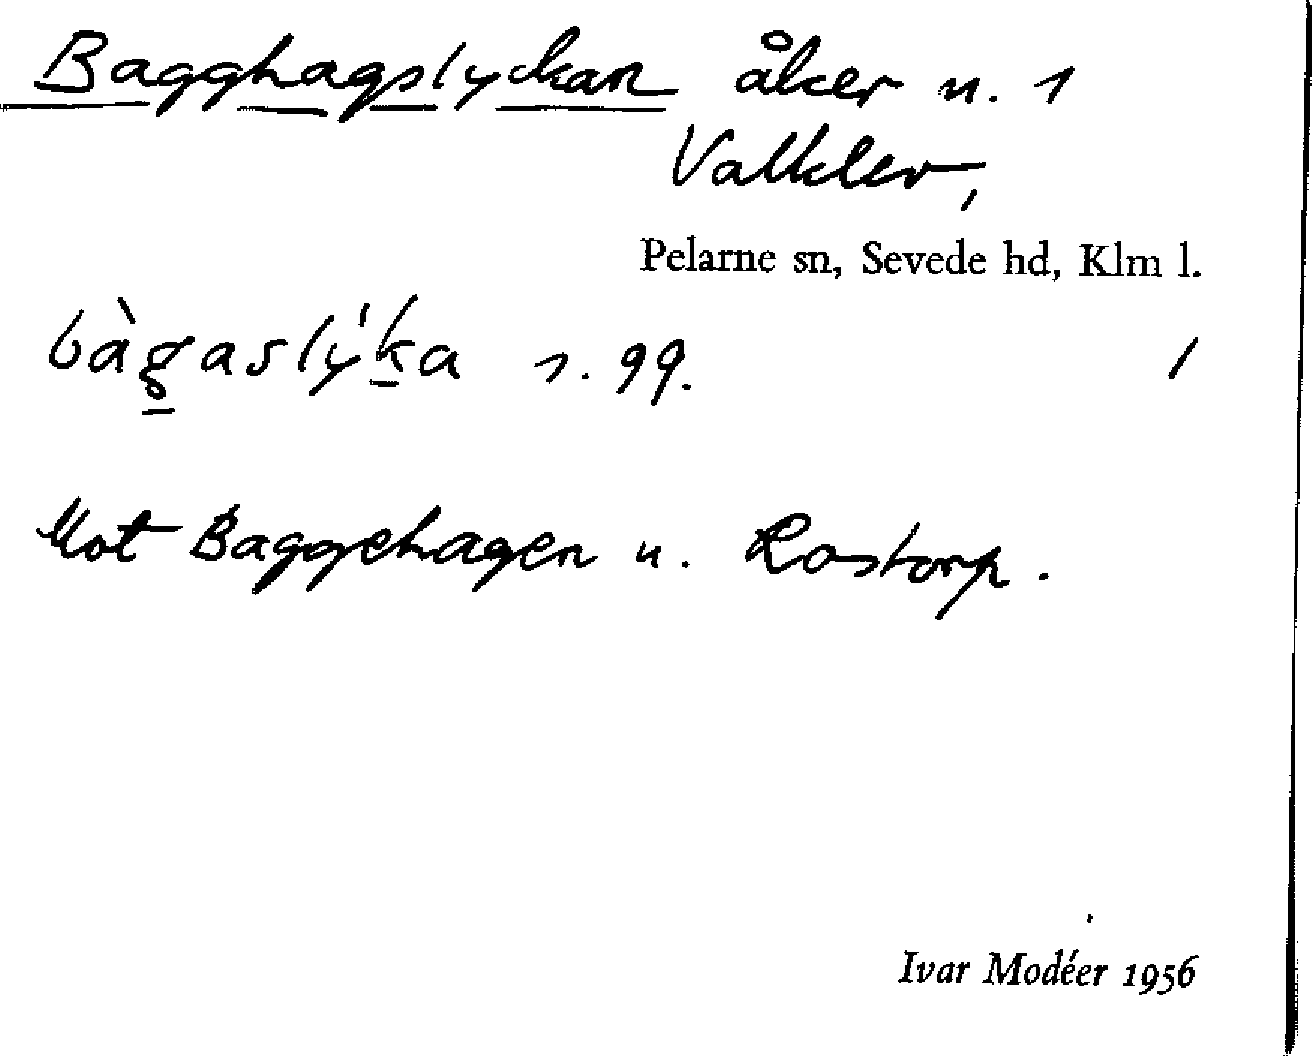 Bagghagslyckan åker n. 1
Valklev,
Pelarne sn, Sevede hd, Klm l.
bàgaslýka s. 99. /
Mot Baggehagen u. Rostorp.
Ivar Modéer 1956